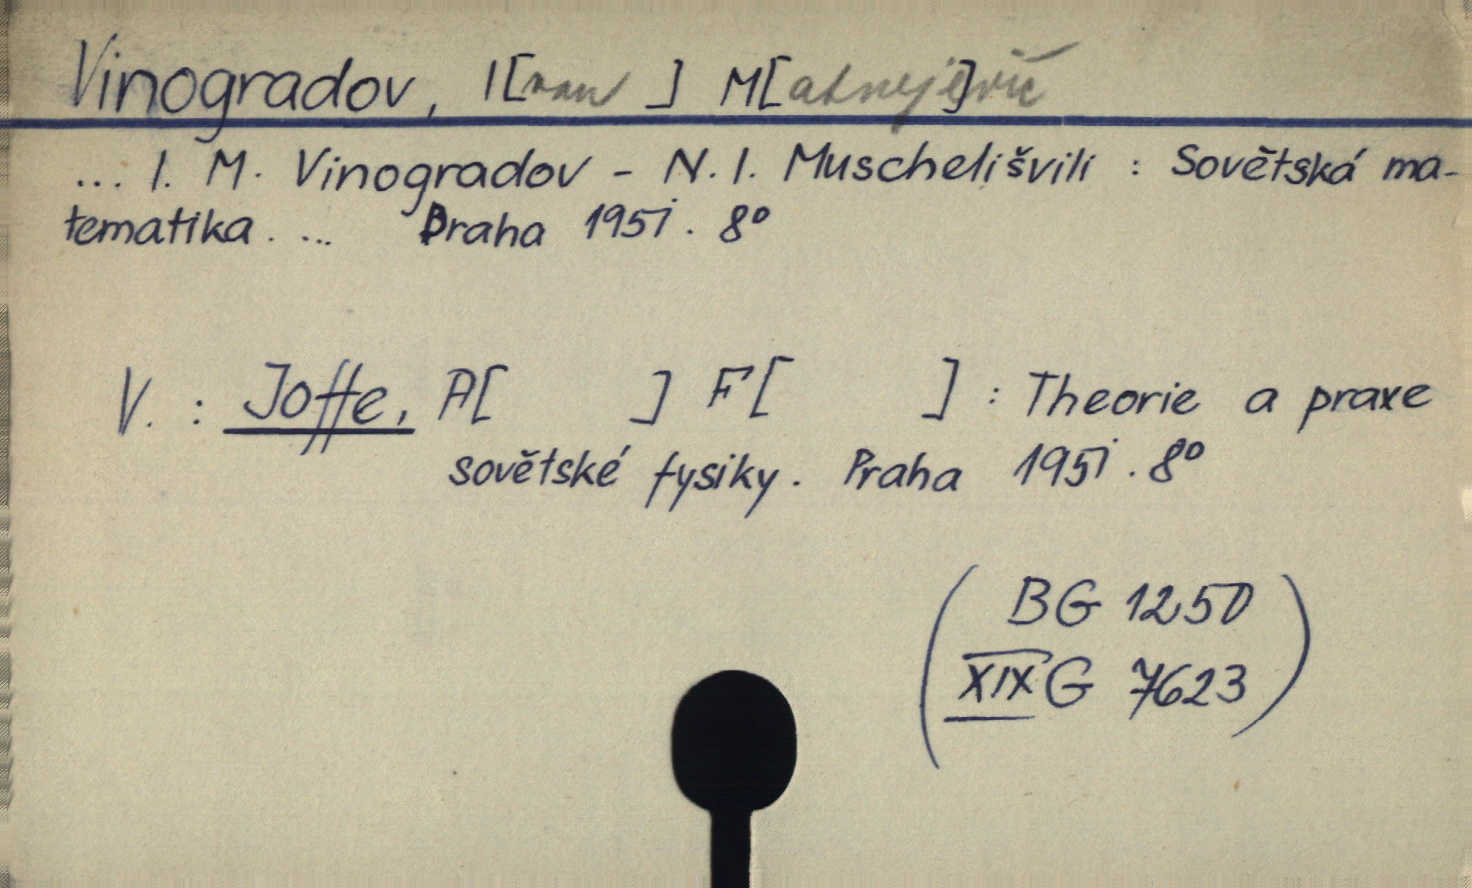 Vinogradov, I[van ] M[atvejevič]
... I. M. Vinogradov - N. I. Muschelišvili : Sovětská ma-
tematika. ... Praha 1951. 8°
V. : Joffe, A[ ] F[ ] : Theorie a praxe
sovětské fysiky. Praha 1951. 8°
( BG 1250
XIX G 7623 )